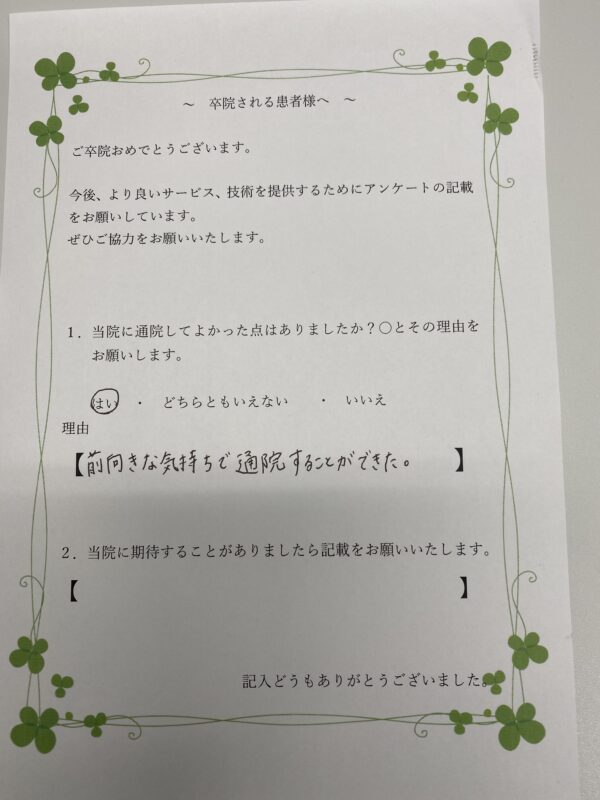 ～　卒院される患者様へ　～
ご卒院おめでとうございます。
今後、より良いサービス、技術を提供するためにアンケートの記載
をお願いしています。
ぜひご協力をお願いいたします。
1．当院に通院してよかった点はありましたか？〇とその理由を
お願いします。
はい　・　どちらともいえない　・　いいえ
理由
【前向きな気持ちで通院することができた。】
2．当院に期待することがありましたら記載をお願いいたします。
【　】
記入どうもありがとうございました。